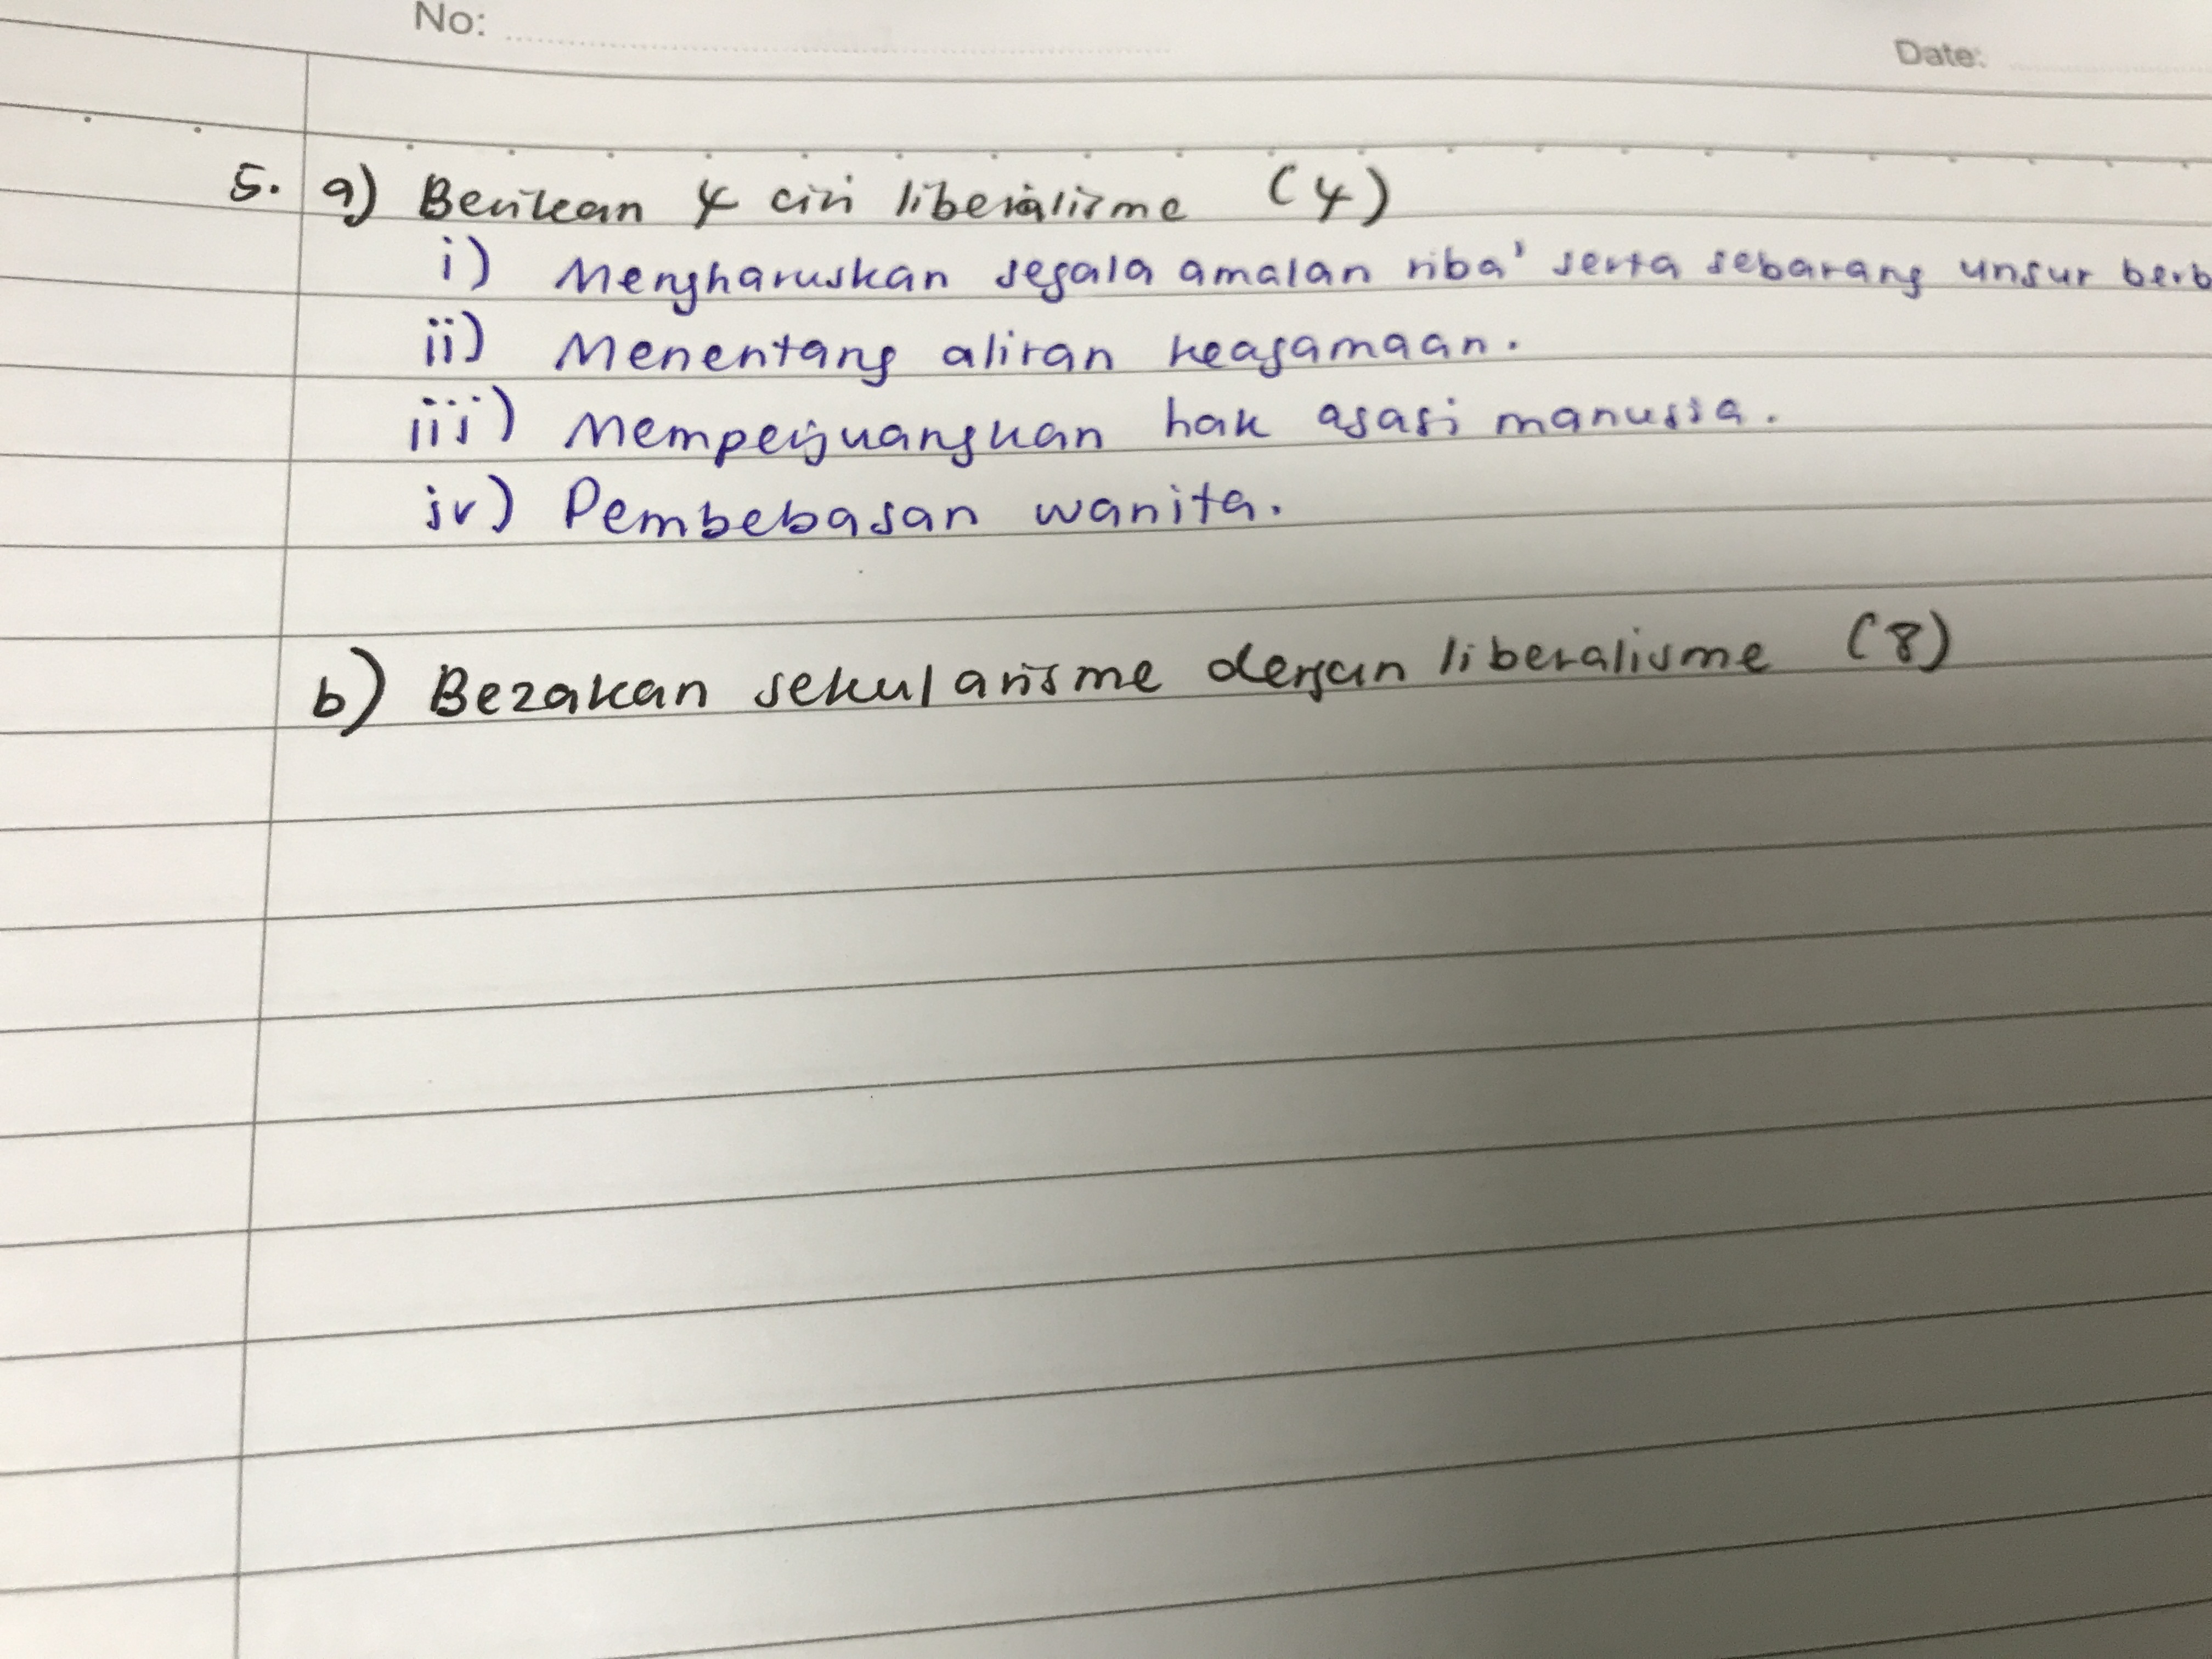 No: Date:
5. a) Berikan 4 ciri liberalisme (4)
i) Mengharuskan segala amalan riba' serta sebarang unsur berb
ii) Menentang aliran keagamaan.
iii) Memperjuangkan hak asasi manusia.
iv) Pembebasan wanita.
b) Bezakan sekularisme dengan liberalisme (8)